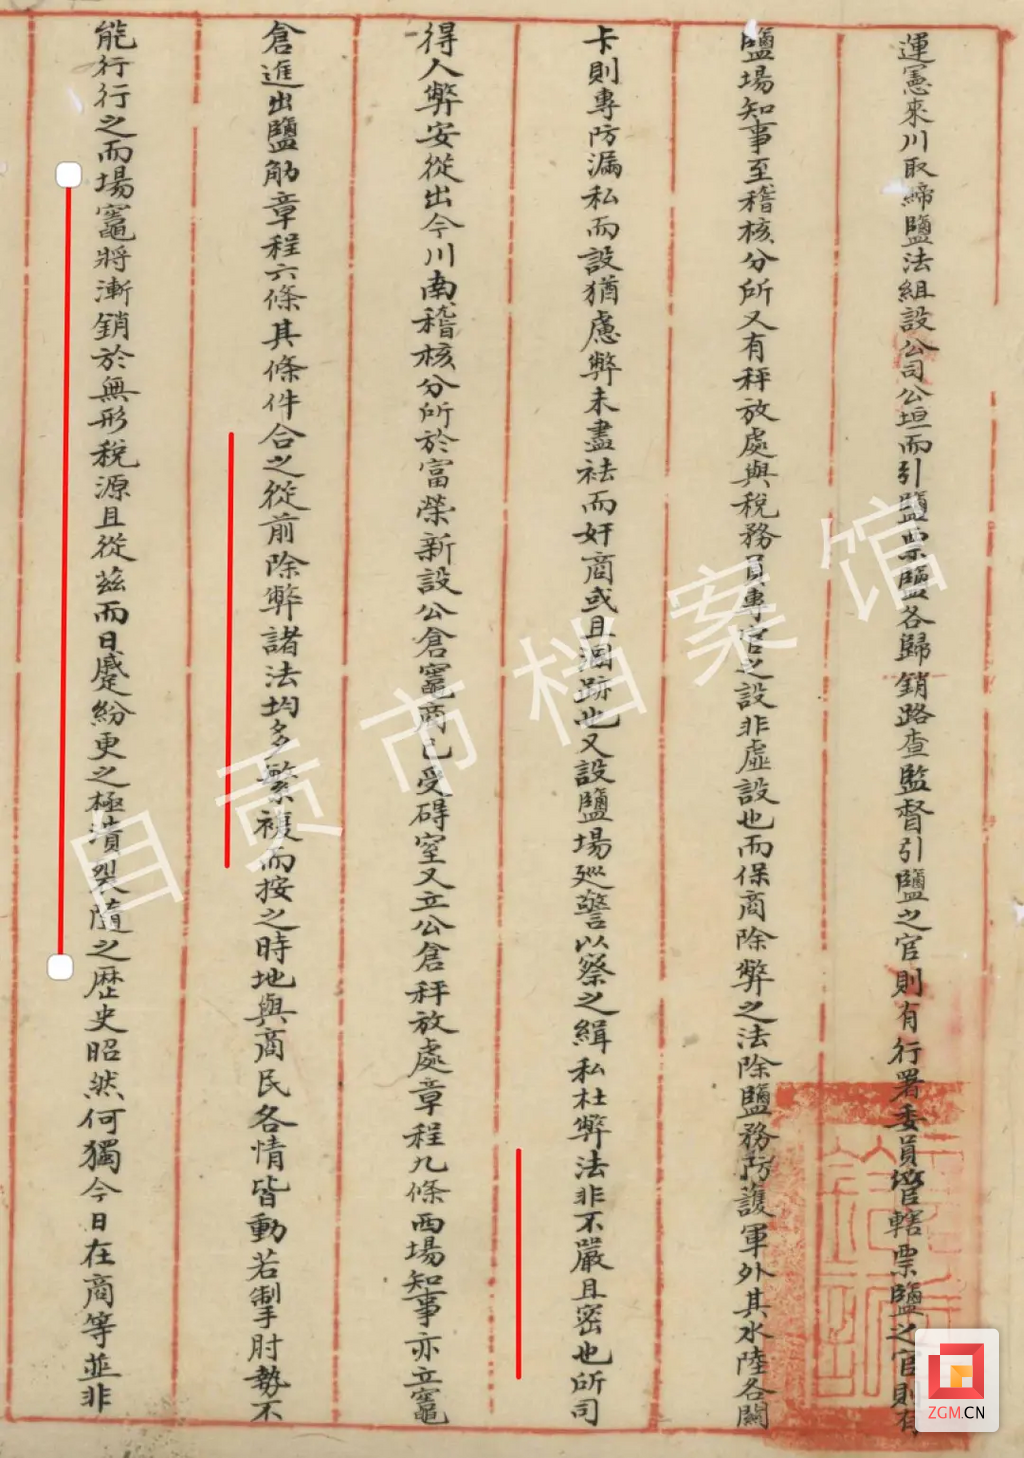 運憲來川取締鹽法組設公司公垣而引鹽票鹽各歸銷路查監督引鹽之官則有行署委員管轄票鹽之官則有
鹽場知事至稽核分所又有秤放處與稅務員專官之設非虛設也而保商除弊之法除鹽務防護軍外其水陸各關
卡則專防漏私而設猶慮弊未盡祛而奸商或且溷跡也又設鹽場巡警以察之緝私杜弊法非不嚴且密也所司
得人弊安從出今川南稽核分所於富榮新設公倉竈商已受碍窒又立公倉秤放處章程九條西場知事亦立竈
倉進出鹽觔章程六條其條件合之從前除弊諸法均多繁複而按之時地與商民各情皆動若掣肘勢不
能行行之而場竈將漸銷於無形稅源且從茲而日蹙紛更之極潰裂隨之歷史昭然何獨今日在商等並非
自贡市档案馆
ZGM.CN